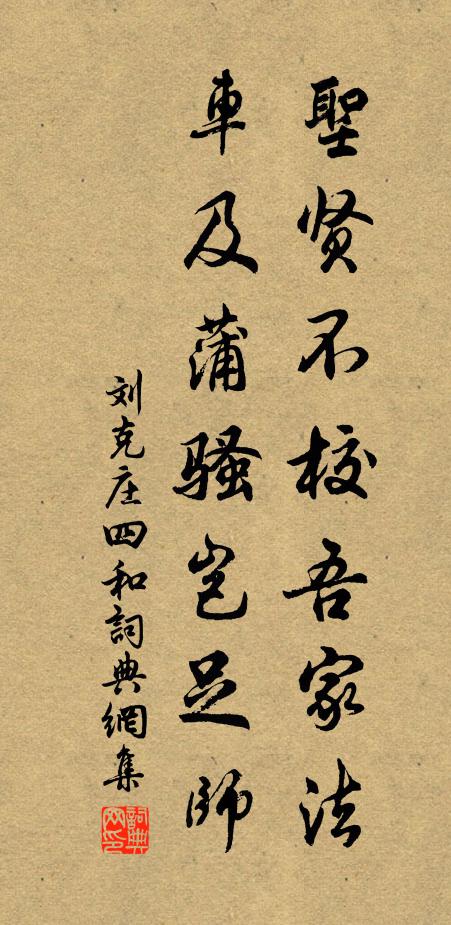 聖贤不校吾家法
車及蒲骚岂足師
刘克庄四和詞典網集
詞典网印